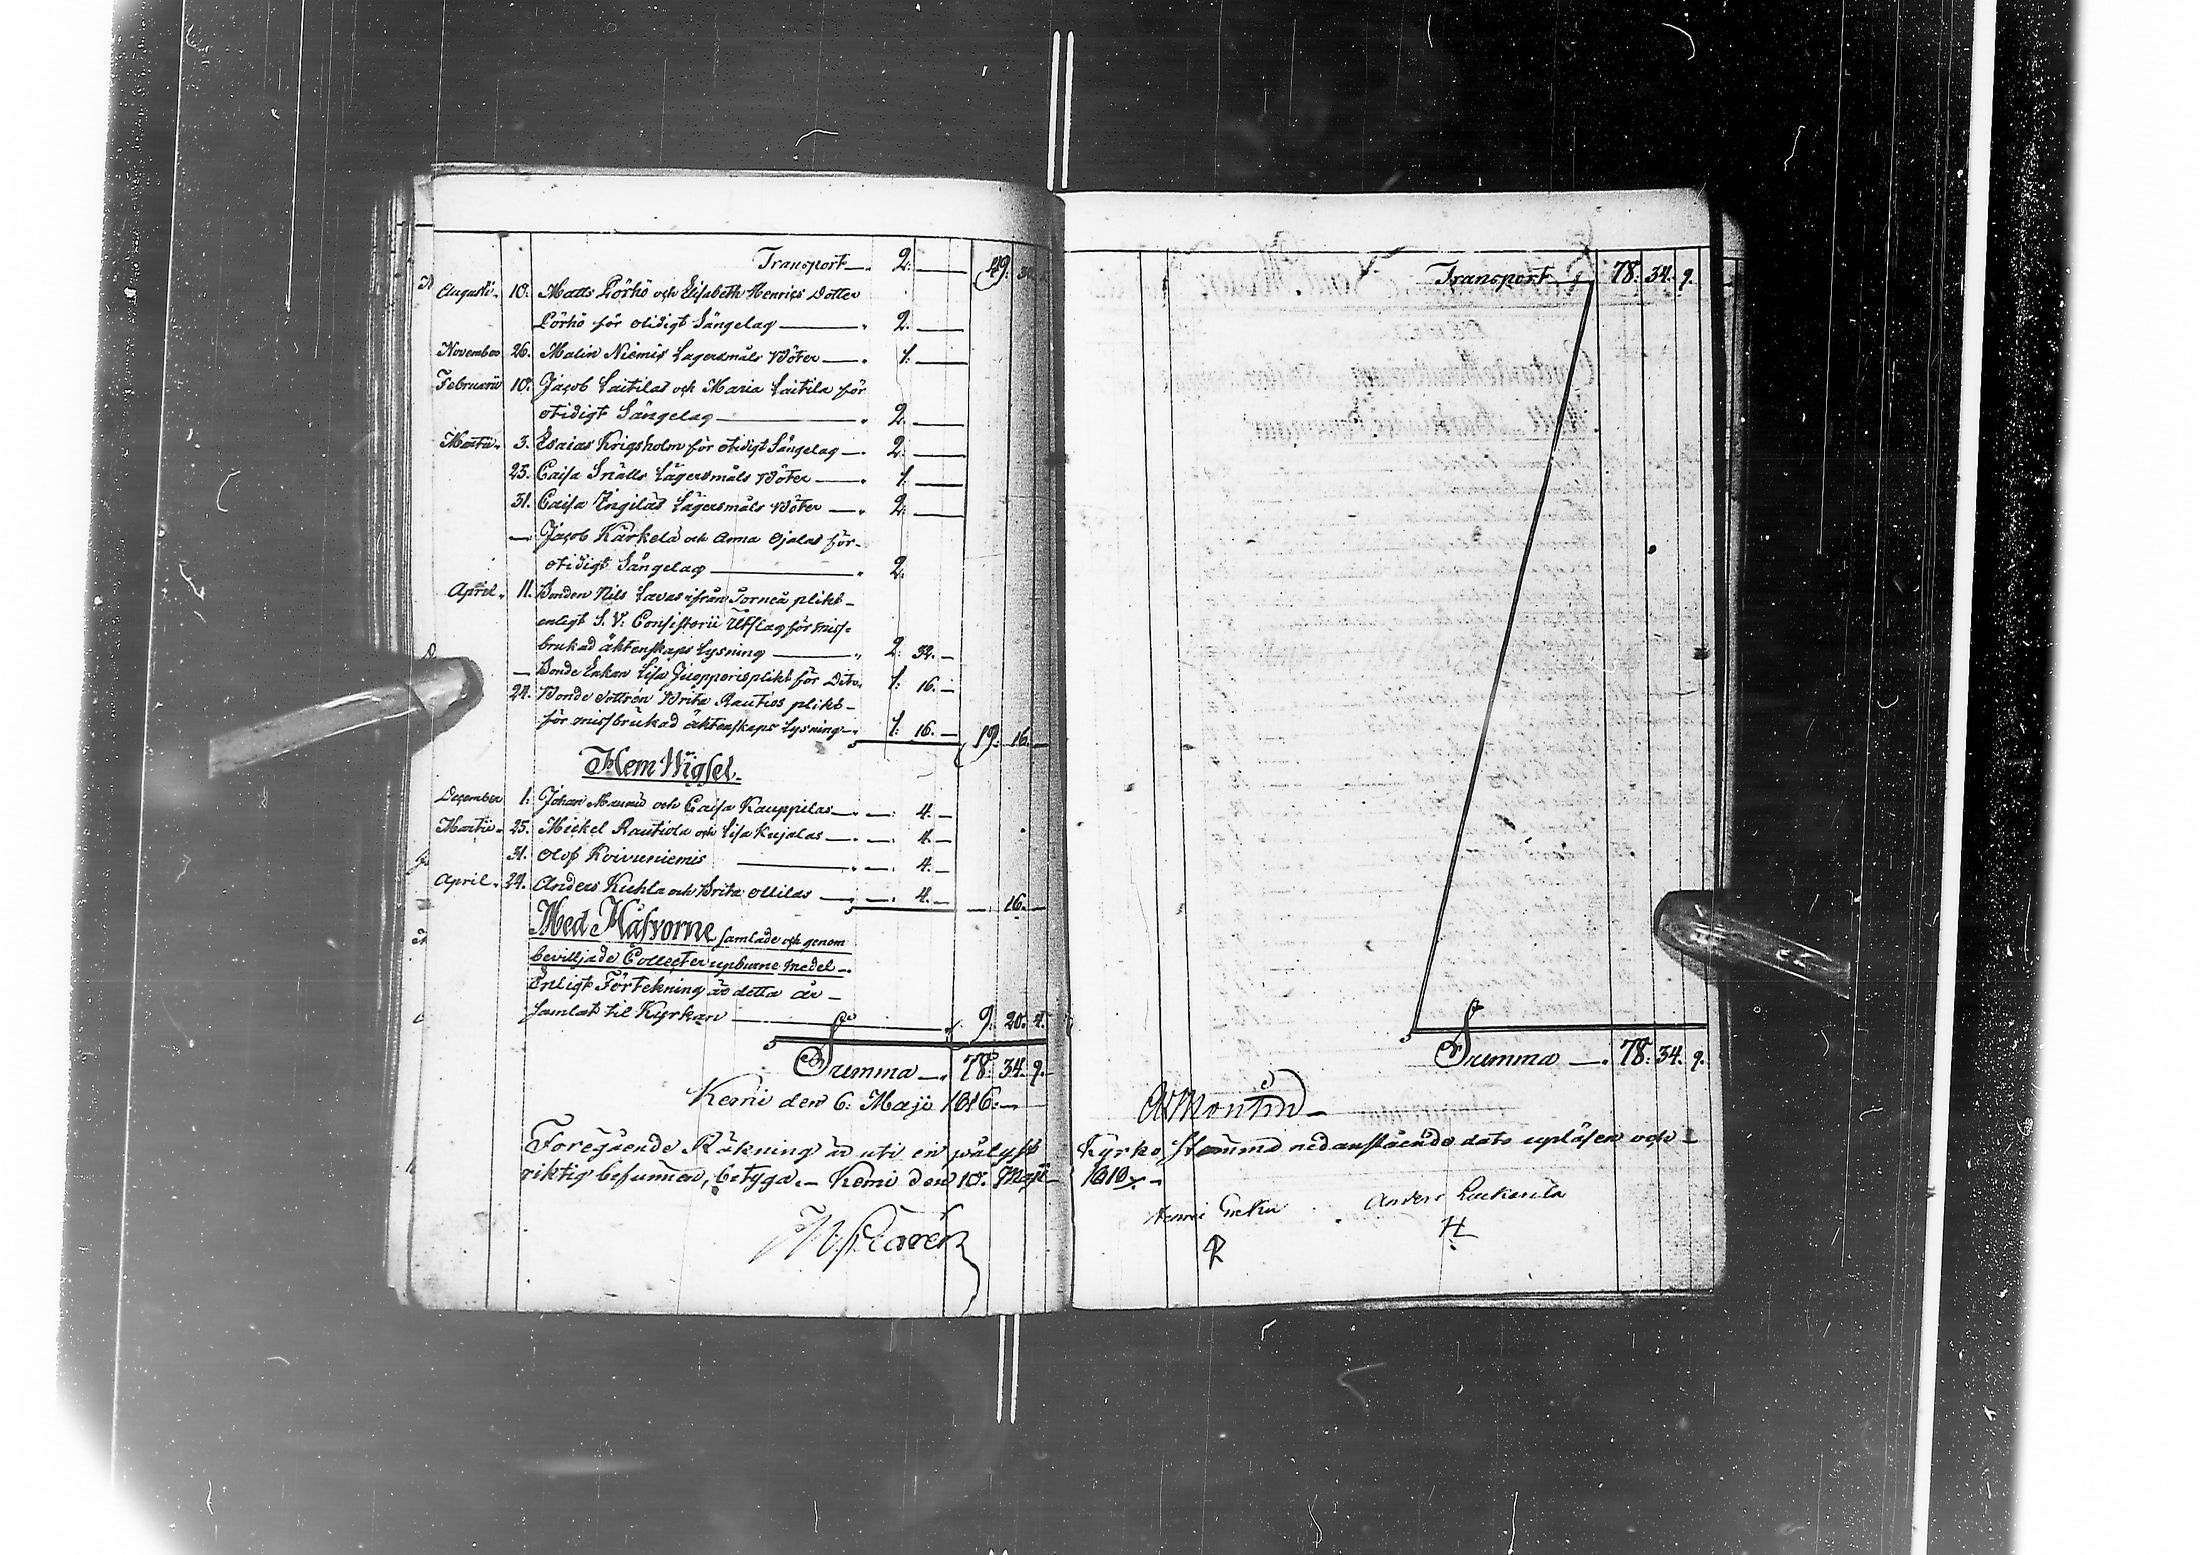 Transport 2. 49.
Augusti 10. Matts Pörhö och Elisabeth Henrics Dotter
Pörhö för otidigt Sängelag 2.
November 26. Malin Niemis Lägersmåls Böter 1.
Februarii 10. Jacob Laitilas och Maria Laitila för
otidigt Sängelag 2.
Martii 3. Esaias Krigsholm för otidigt Sängelag 2.
25. Caisa Snälls Lägersmåls Böter 1.
31. Caisa Engilas Lägersmåls Böter 2.
Jacob Karkela och Anna Ojalas för
otidigt Sängelag 2.
April 11. Bonden Nils Lavas ifrån Torneå plikt
enligt S. V. Consistorii Utslag för miss-
brukad äktenskaps Lysning 2: 32.
Bonde Enkan Lisa plikt för Dito 1: 16.
24. Bonde Dottren Brita Rautios plikt
för missbrukad äktenskaps Lysning 1: 16. 19. 16.
Hem Wigsel.
December 1. Johan och Caisa Kauppilas 4.
Martii 25. Mickel Rautiola och Lisa Kujalas 4.
31. Olof Koivuniemis 4.
April 24. Anders Kuhla och Brita Ollilas 4. 16.
Med Håfvorne samlade och genom
bevilljade Collecter upburne medel
Enligt Förtekning är detta år
samlat til Kyrkan 9. 20. 4.
Summa 78. 34. 9.
Kemi den 6. Maji 1816.
Foregående Räkning är uti en pålyst
riktig befunnen, betyga. Kemi den 10. Maji
Transport 78. 34. 9.
Summa 78. 34. 9.
Kyrko Stämma nedanstående dato upläsen och
Anders
H
R